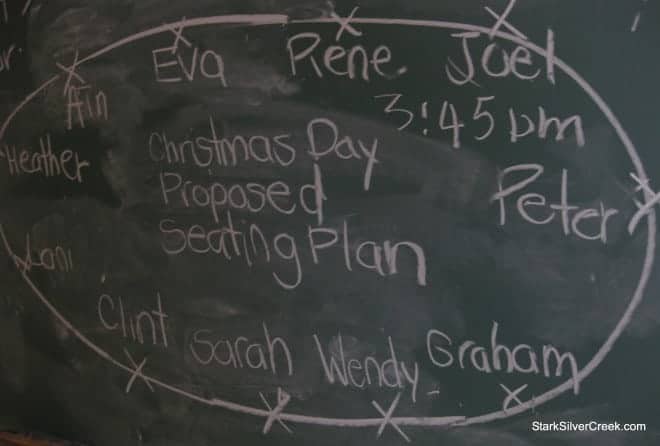 Eva Rene Joel
Ain
3:45pm
Heather
Christmas Day
Proposed
Seating Plan
Peter
Loni
Clint Sarah Wendy Graham
StarkSilverCreek.com